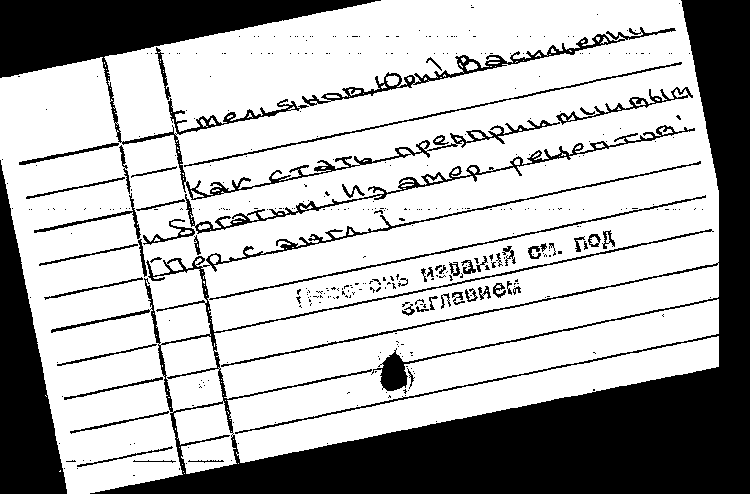 Емельянов, Юрий Васильевич
Как стать предприимчивым
и богатым: Из амер. рецептов:
[Пер. с англ.].
Перечень изданий см. под
заглавием